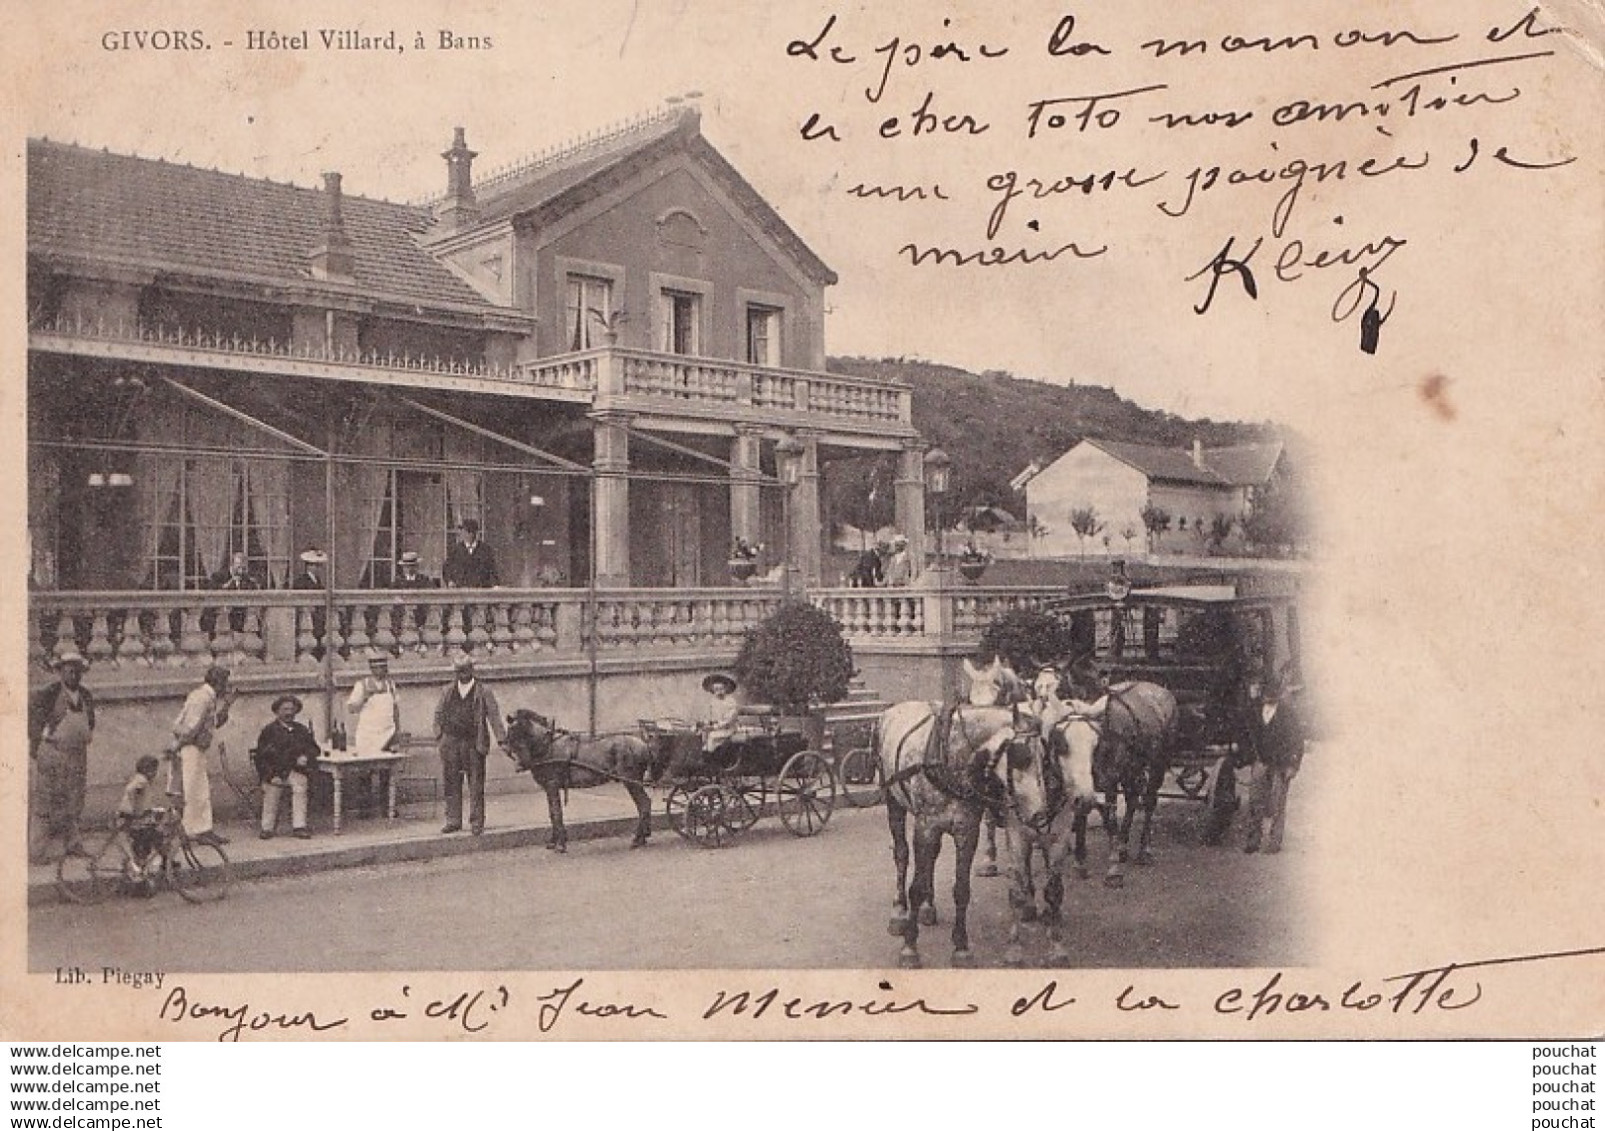 GIVORS. - Hôtel Villard, à Bans
Le père la maman et
le cher Toto nos amitier
une grosse poignèe de
main
Lib. Piegay
Bonjour à Mr Jean Messier et la charlotte
www.delcampe.net
www.delcampe.net
www.delcampe.net
www.delcampe.net
www.delcampe.net
pouchat
pouchat
pouchat
pouchat
pouchat